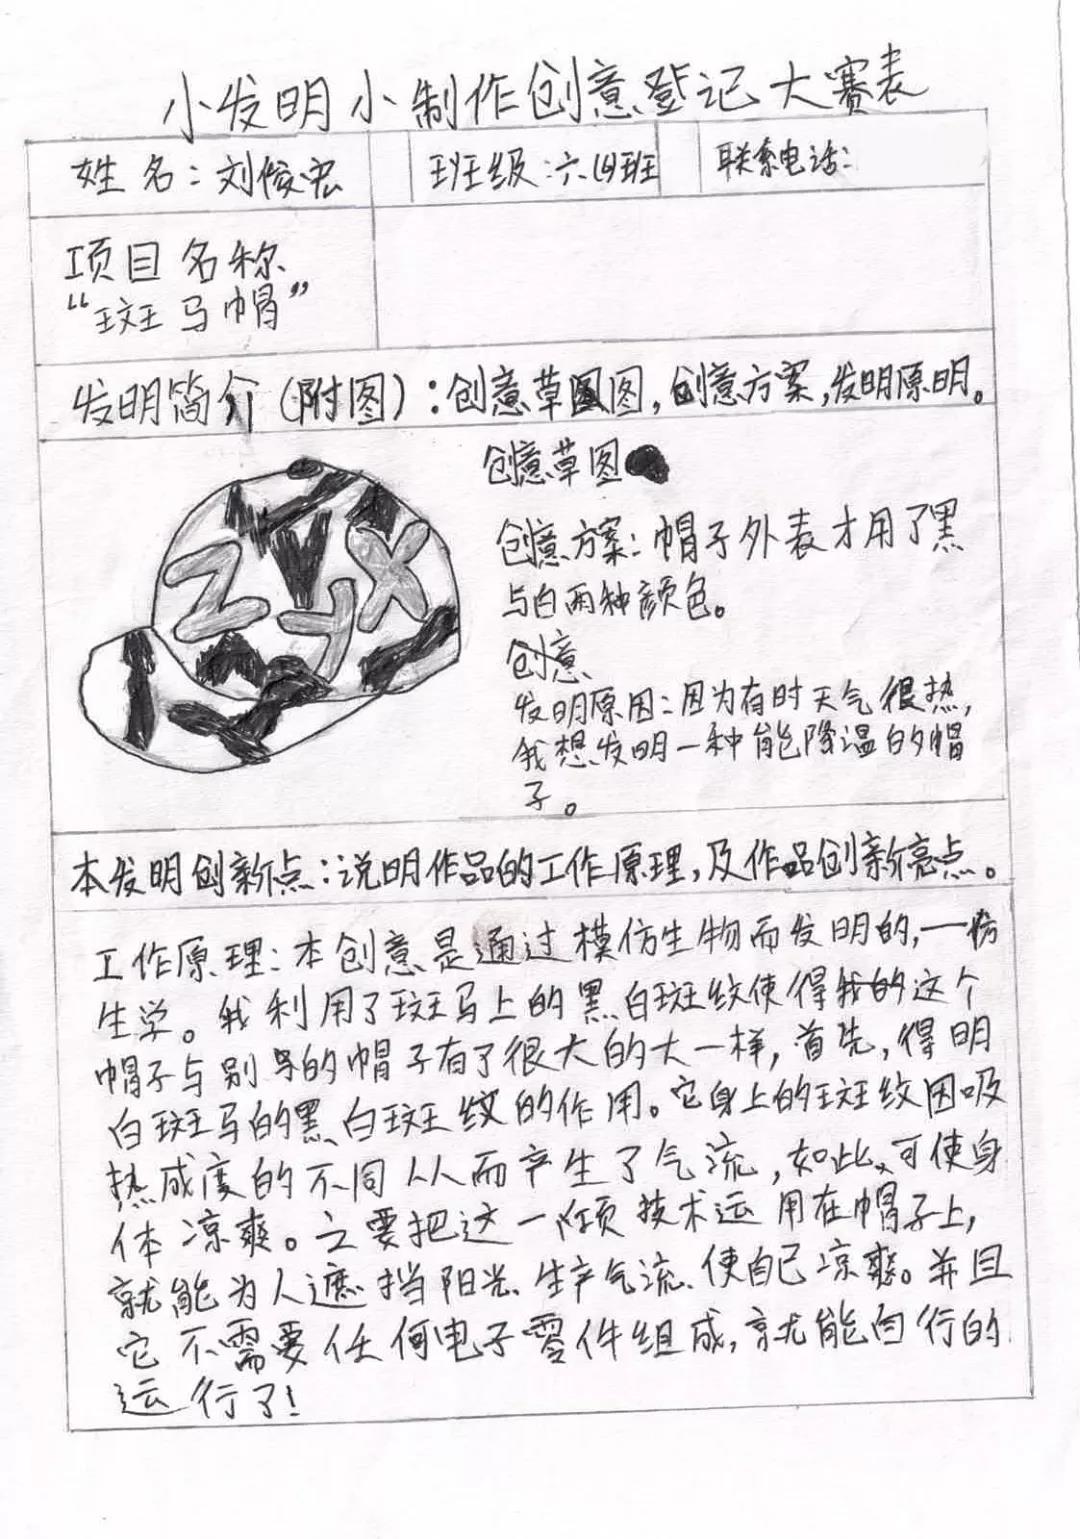 小发明小制作创意登记大赛表
姓名：刘俊宏 班级：六四班 联系电话：
项目名称
“斑马帽”
发明简介（附图）：创意草图图，创意方案，发明原明。
创意草图
创意方案：帽子外表才用了黑
与白两种颜色。
创意
发明原因：因为有时天气很热，
我想发明一种能降温的帽
子。
ZYX
本发明创新点：说明作品的工作原理，及作品创新亮点。
工作原理：本创意是通过模仿生物而发明的，一仿
生学。我利用了斑马上的黑白斑纹使得我的这个
帽子与别的帽子有了很大的大一样，首先，得明
白斑马的黑白斑纹的作用。它身上的斑纹因吸
热成度的不同从而产生了气流，如此，可使身
体凉爽。之要把这一项技术运用在帽子上，
就能为人遮挡阳光、生产气流、使自己凉爽。并且
它不需要任何电子零件组成，就能自行的
运行了！